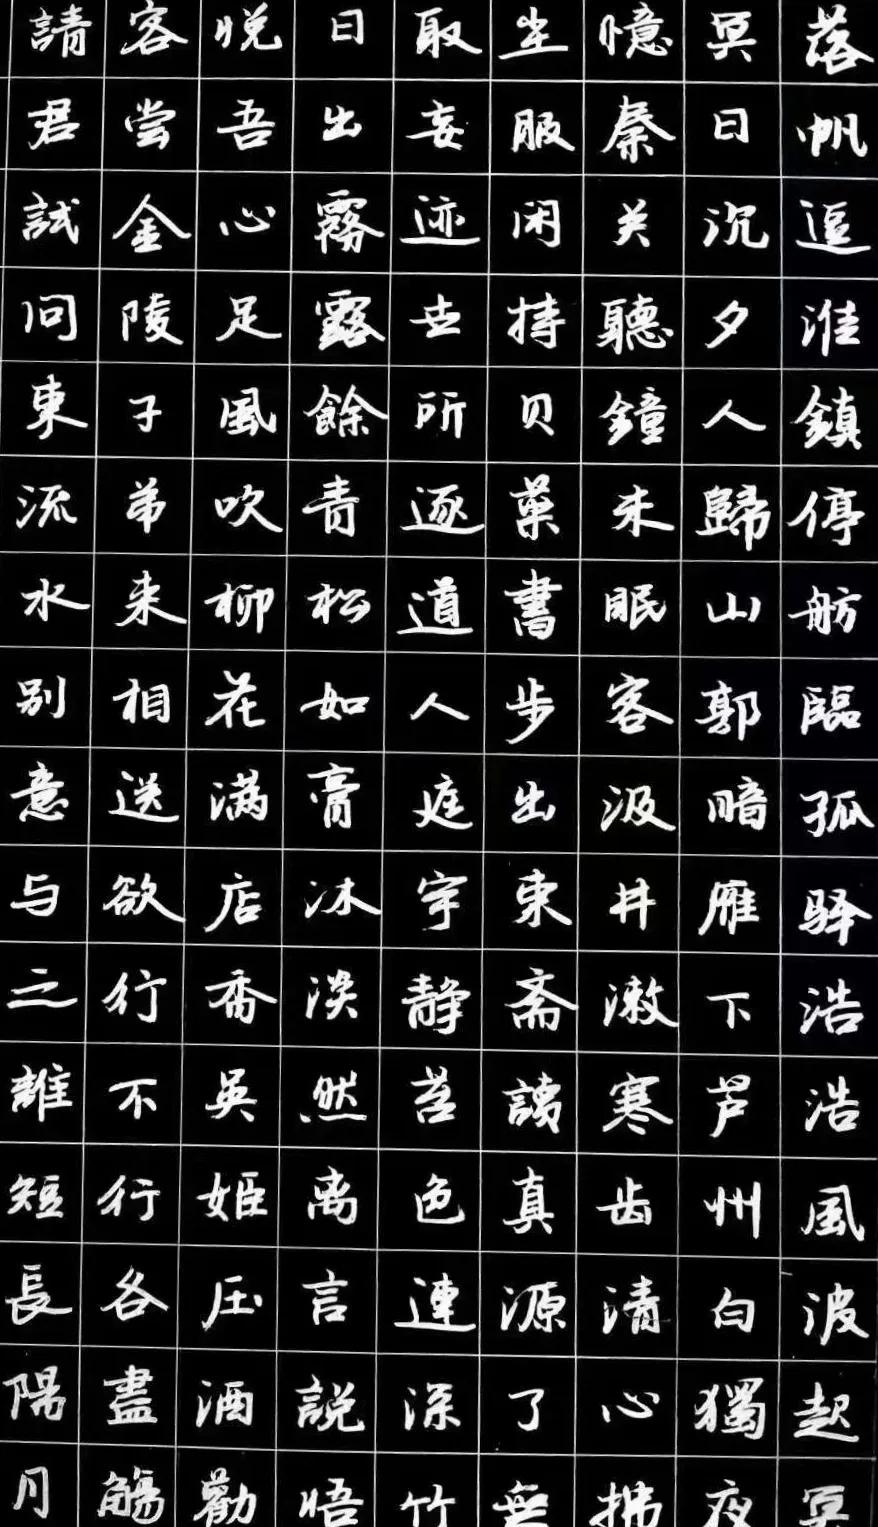 落帆逗淮鎮停舫臨孤驿浩浩風波起冥
冥日沉夕人歸山郭暗雁下芦州白獨夜
憶秦关聽鐘未眠客汲井漱寒齿清心拂
尘服闲持贝葉書步出東斋讀真源了無
取妄迹世所逐道人庭宇静苔色連深竹
日出霧露餘青松如膏沐淡然离言説悟
悦吾心足風吹柳花满店香吴姬压酒勸
客尝金陵子弟来相送欲行不行各盡觴
請君試问東流水别意与之誰短長陽月